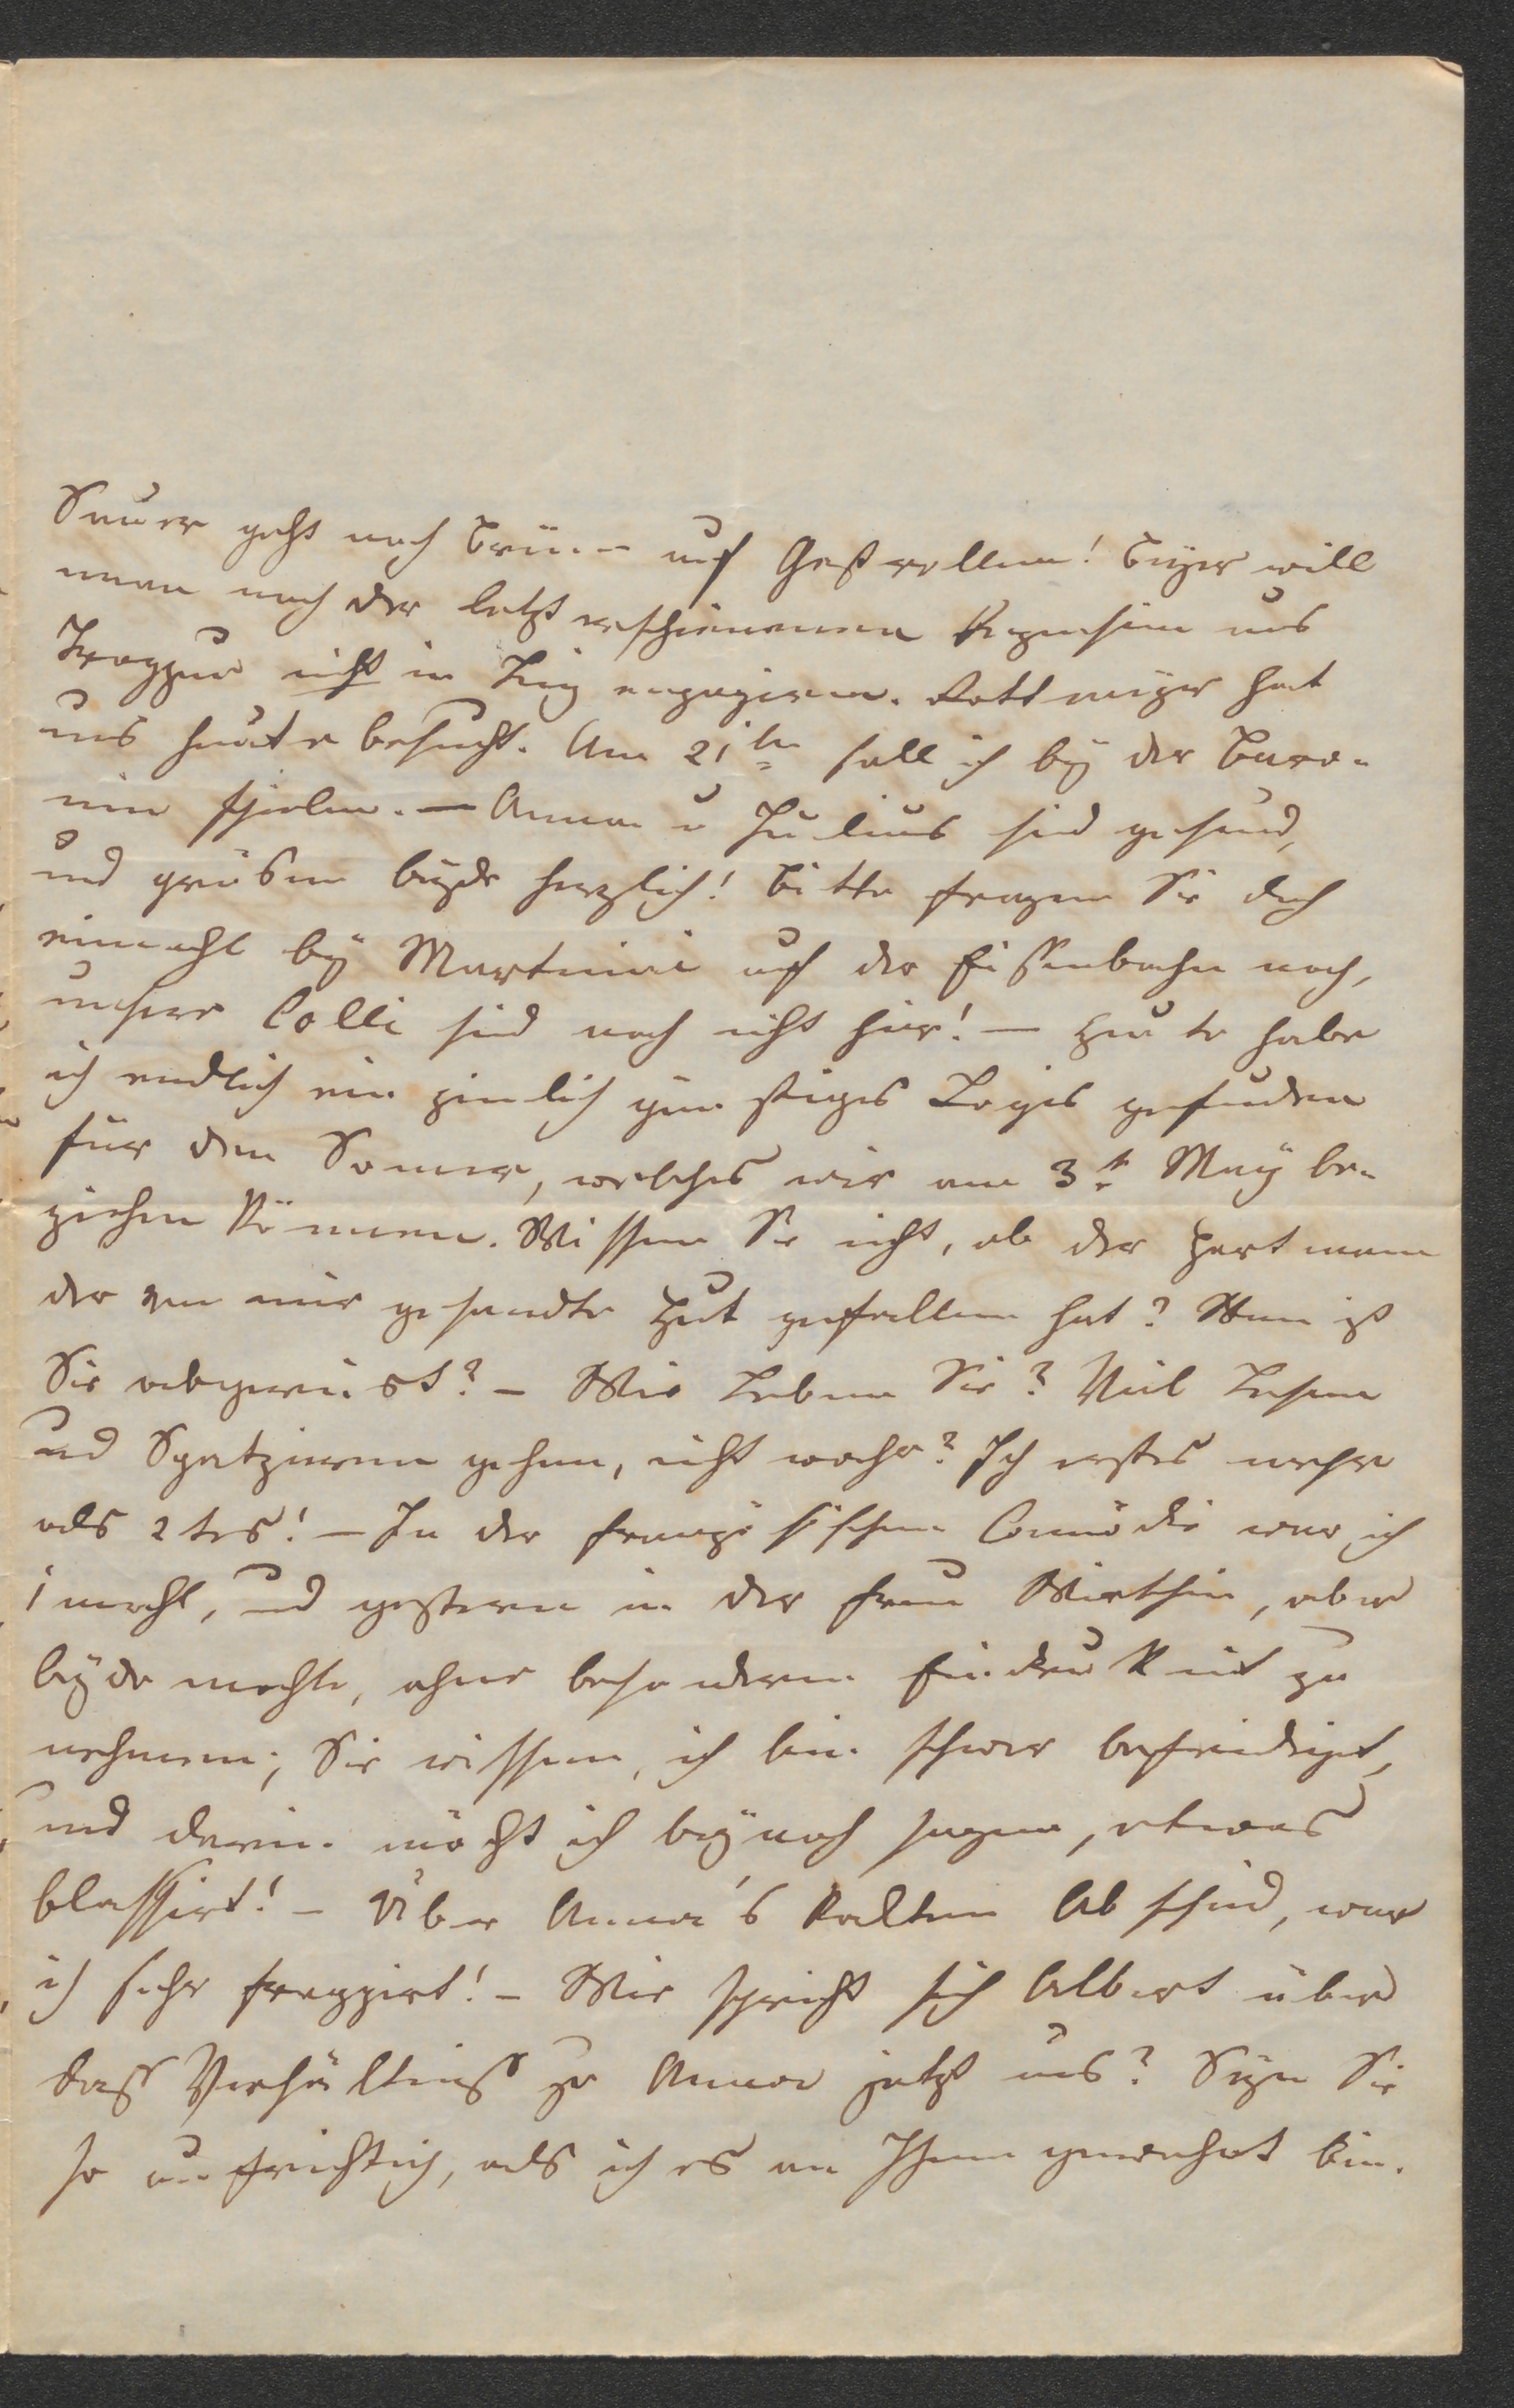 Saurer geht nach Brünn auf Gastrollen! Beyer will
man nach der letzt erschienenen Rezension aus
Troppau nicht in Linz engagieren. Rottmayer hat
uns heute besucht. Am 21ten soll ich bey der Baro-
nin spielen. — Anna u Julius sind gesund,
und grüßen beyde herzlich! Bitte fragen Sie doch
einmahl bey Martini auf der Eissenbahn nach,
unsere Colli sind noch nicht hier! — Heute habe
ich endlich ein ziemlich günstiges Logis gefunden
für den Sommer, welches wir am 3t May be-
ziehen können. Wissen Sie nicht, ob der Hartmann
der von mir gesandte Hut gefallen hat? Wann ist
Sie abgereist? – Wie Leben Sie? Viel Lesen
und Spatzieren gehen, nicht wahr? Ich erstes mehr
als 2tes! – In der französischen Comödie war ich
1 mahl, und gestern in der Frau Wirthin, aber
beyde mahle, ohne besondern Eindruk mit zu
nehmen; Sie wissen, ich bin schwer befriedigt,
und darin möcht ich beynah sagen, etwas
blassirt! – Über Anna's kalten Abschied, war
ich sehr frappirt! – Wie spricht sich Albert über
dass Verhältniss zu Anna jetzt aus? Seyn Sie
so aufrichtig, als ich es an Ihnen gewohnt bin.